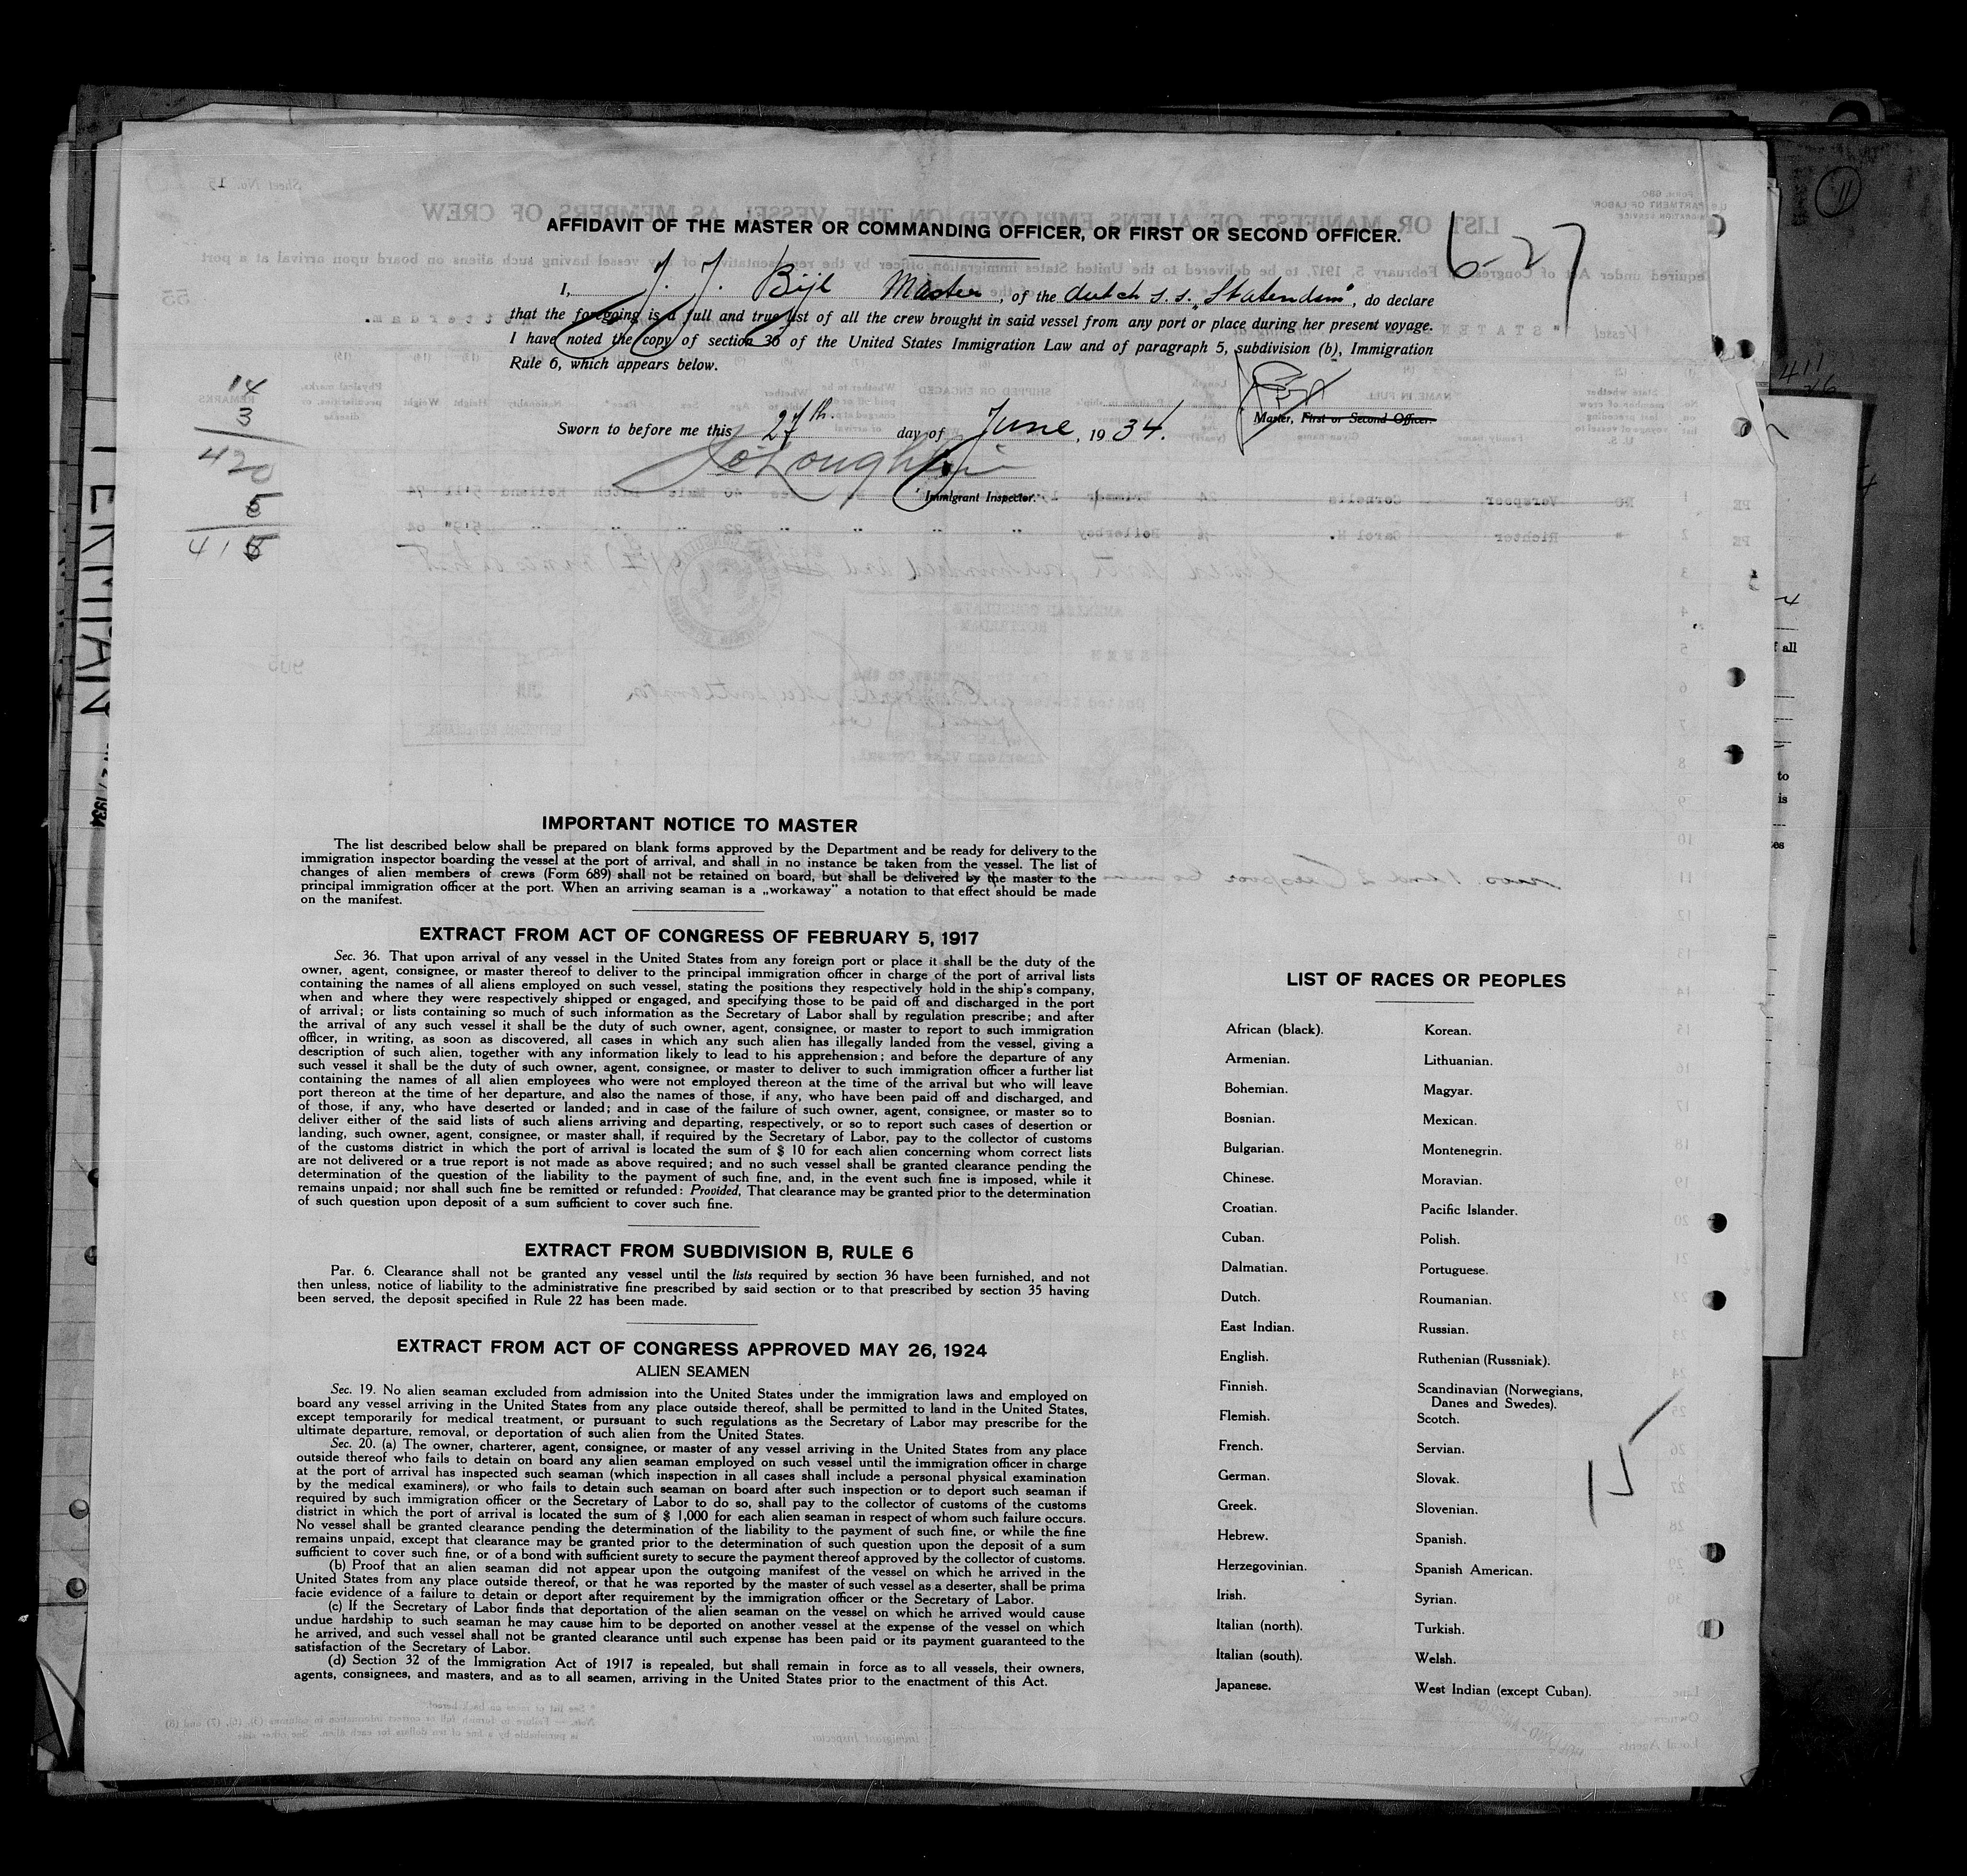 AFFIDAVIT OF THE MASTER OR COMMANDING OFFICER, OR FIRST OR SECOND OFFICER.
6-27
I, J. J. Bijl Master, of the dutch s.s. „Statendam", do declare
that the foregoing is a full and true list of all the crew brought in said vessel from any port or place during her present voyage.
I have noted the copy of section 36 of the United States Immigration Law and of paragraph 5, subdivision (b), Immigration
Rule 6, which appears below.
14
3
420
418
Master, First or Second Officer.
Sworn to before me this 27th. day of June, 1934.
Immigrant Inspector.
IMPORTANT NOTICE TO MASTER
The list described below shall be prepared on blank forms approved by the Department and be ready for delivery to the
immigration inspector boarding the vessel at the port of arrival, and shall in no instance be taken from the vessel. The list of
changes of alien members of crews (Form 689) shall not be retained on board, but shall be delivered by the master to the
principal immigration officer at the port. When an arriving seaman is a „workaway" a notation to that effect should be made
on the manifest.
EXTRACT FROM ACT OF CONGRESS OF FEBRUARY 5, 1917
Sec. 36. That upon arrival of any vessel in the United States from any foreign port or place it shall be the duty of the
owner, agent, consignee, or master thereof to deliver to the principal immigration officer in charge of the port of arrival lists
containing the names of all aliens employed on such vessel, stating the positions they respectively hold in the ship's company,
when and where they were respectively shipped or engaged, and specifying those to be paid off and discharged in the port
of arrival; or lists containing so much of such information as the Secretary of Labor shall by regulation prescribe; and after
the arrival of any such vessel it shall be the duty of such owner, agent, consignee, or master to report to such immigration
officer, in writing, as soon as discovered, all cases in which any such alien has illegally landed from the vessel, giving a
description of such alien, together with any information likely to lead to his apprehension; and before the departure of any
such vessel it shall be the duty of such owner, agent, consignee, or master to deliver to such immigration officer a further list
containing the names of all alien employees who were not employed thereon at the time of the arrival but who will leave
port thereon at the time of her departure, and also the names of those, if any, who have been paid off and discharged, and
of those, if any, who have deserted or landed; and in case of the failure of such owner, agent, consignee, or master so to
deliver either of the said lists of such aliens arriving and departing, respectively, or so to report such cases of desertion or
landing, such owner, agent, consignee, or master shall, if required by the Secretary of Labor, pay to the collector of customs
of the customs district in which the port of arrival is located the sum of $ 10 for each alien concerning whom correct lists
are not delivered or a true report is not made as above required; and no such vessel shall be granted clearance pending the
determination of the question of the liability to the payment of such fine, and, in the event such fine is imposed, while it
remains unpaid; nor shall such fine be remitted or refunded: Provided, That clearance may be granted prior to the determination
of such question upon deposit of a sum sufficient to cover such fine.
EXTRACT FROM SUBDIVISION B, RULE 6
Par. 6. Clearance shall not be granted any vessel until the lists required by section 36 have been furnished, and not
then unless, notice of liability to the administrative fine prescribed by said section or to that prescribed by section 35 having
been served, the deposit specified in Rule 22 has been made.
EXTRACT FROM ACT OF CONGRESS APPROVED MAY 26, 1924
ALIEN SEAMEN
Sec. 19. No alien seaman excluded from admission into the United States under the immigration laws and employed on
board any vessel arriving in the United States from any place outside thereof, shall be permitted to land in the United States,
except temporarily for medical treatment, or pursuant to such regulations as the Secretary of Labor may prescribe for the
ultimate departure, removal, or deportation of such alien from the United States.
Sec. 20. (a) The owner, charterer, agent, consignee, or master of any vessel arriving in the United States from any place
outside thereof who fails to detain on board any alien seaman employed on such vessel until the immigration officer in charge
at the port of arrival has inspected such seaman (which inspection in all cases shall include a personal physical examination
by the medical examiners), or who fails to detain such seaman on board after such inspection or to deport such seaman if
required by such immigration officer or the Secretary of Labor to do so, shall pay to the collector of customs of the customs
district in which the port of arrival is located the sum of $ 1,000 for each alien seaman in respect of whom such failure occurs.
No vessel shall be granted clearance pending the determination of the liability to the payment of such fine, or while the fine
remains unpaid, except that clearance may be granted prior to the determination of such question upon the deposit of a sum
sufficient to cover such fine, or of a bond with sufficient surety to secure the payment thereof approved by the collector of customs.
(b) Proof that an alien seaman did not appear upon the outgoing manifest of the vessel on which he arrived in the
United States from any place outside thereof, or that he was reported by the master of such vessel as a deserter, shall be prima
facie evidence of a failure to detain or deport after requirement by the immigration officer or the Secretary of Labor.
(c) If the Secretary of Labor finds that deportation of the alien seaman on the vessel on which he arrived would cause
undue hardship to such seaman he may cause him to be deported on another vessel at the expense of the vessel on which
he arrived, and such vessel shall not be granted clearance until such expense has been paid or its payment guaranteed to the
satisfaction of the Secretary of Labor.
(d) Section 32 of the Immigration Act of 1917 is repealed, but shall remain in force as to all vessels, their owners,
agents, consignees, and masters, and as to all seamen, arriving in the United States prior to the enactment of this Act.
LIST OF RACES OR PEOPLES
African (black).
Armenian.
Bohemian.
Bosnian.
Bulgarian.
Chinese.
Croatian.
Cuban.
Dalmatian.
Dutch.
East Indian.
English.
Finnish.
Flemish.
French.
German.
Greek.
Hebrew.
Herzegovinian.
Irish.
Italian (north).
Italian (south).
Japanese.
Korean.
Lithuanian.
Magyar.
Mexican.
Montenegrin.
Moravian.
Pacific Islander.
Polish.
Portuguese.
Roumanian.
Russian.
Ruthenian (Russniak).
Scandinavian (Norwegians,
Danes and Swedes).
Scotch.
Servian.
Slovak.
Slovenian.
Spanish.
Spanish American.
Syrian.
Turkish.
Welsh.
West Indian (except Cuban).
15
11